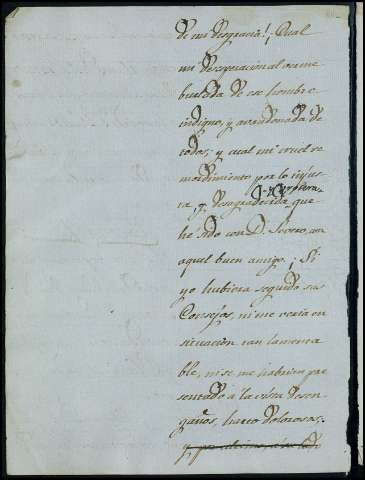 de mi desgracia! ¡Qual
mi desesperacion al verme
burlada de ese hombre
indigno, y avandonada de
todos; y cual mi cruel re
mordimiento por lo injus-
ta y desagradecida que
he sido con D. con
aquel buen amigo. ¡Si
yo hubiera seguido sus
Consejos, ni me veria en
situacion tan lamenta
ble, ni se me habrian pre
sentado á la vista desen
gaños, harto dolorosos;
y por ultimo,